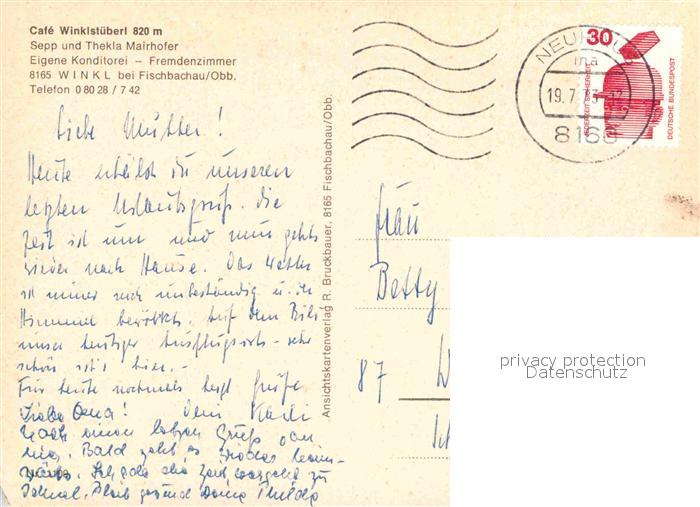 Café Winklstüberl 820 m
Sepp und Thekla Mairhofer
Eigene Konditorei – Fremdenzimmer
8165 WINKL bei Fischbachau/Obb.
Telefon 0 80 28 / 7 42
Liebe Mutter!
Heute erhälst du unseren
letzten Urlaubsgruß. Die
Zeit ist um und nun gehts
wieder nach Hause. Das Wetter
ist immer noch unbeständig u. der
Himmel bewölkt. Auf dem Bild
unser heutiger Ausflugsort - sehr
schön ist's hier.-
Für heute nochmals herzl. Grüße
Dein
Liebe Oma!
Noch einen letzten Gruß von
mir. Bald geht es wieder heim-
wärts. Schade die Zeit vergeht zu
schnell. Bleib gesund Deine
Ansichtskartenverlag R. Bruckbauer, 8165 Fischbachau/Obb.
30
JEDERZEIT SICHERHEIT
DEUTSCHE BUNDESPOST
NEUHAUS
19.7.73
8165
Frau
Betty
87
privacy protection
Datenschutz